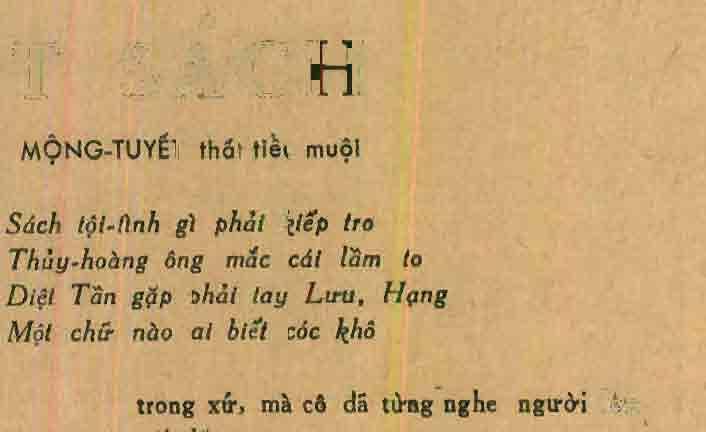 T SÁCH
MỘNG-TUYẾT thất tiểu muội
Sách tội-tình gì phải kiếp tro
Thủy-hoàng ông mắc cái lầm to
Diệt Tần gặp phải tay Lưu, Hạng
Một chữ nào ai biết cóc khô
trong xứ, mà cô đã từng nghe người